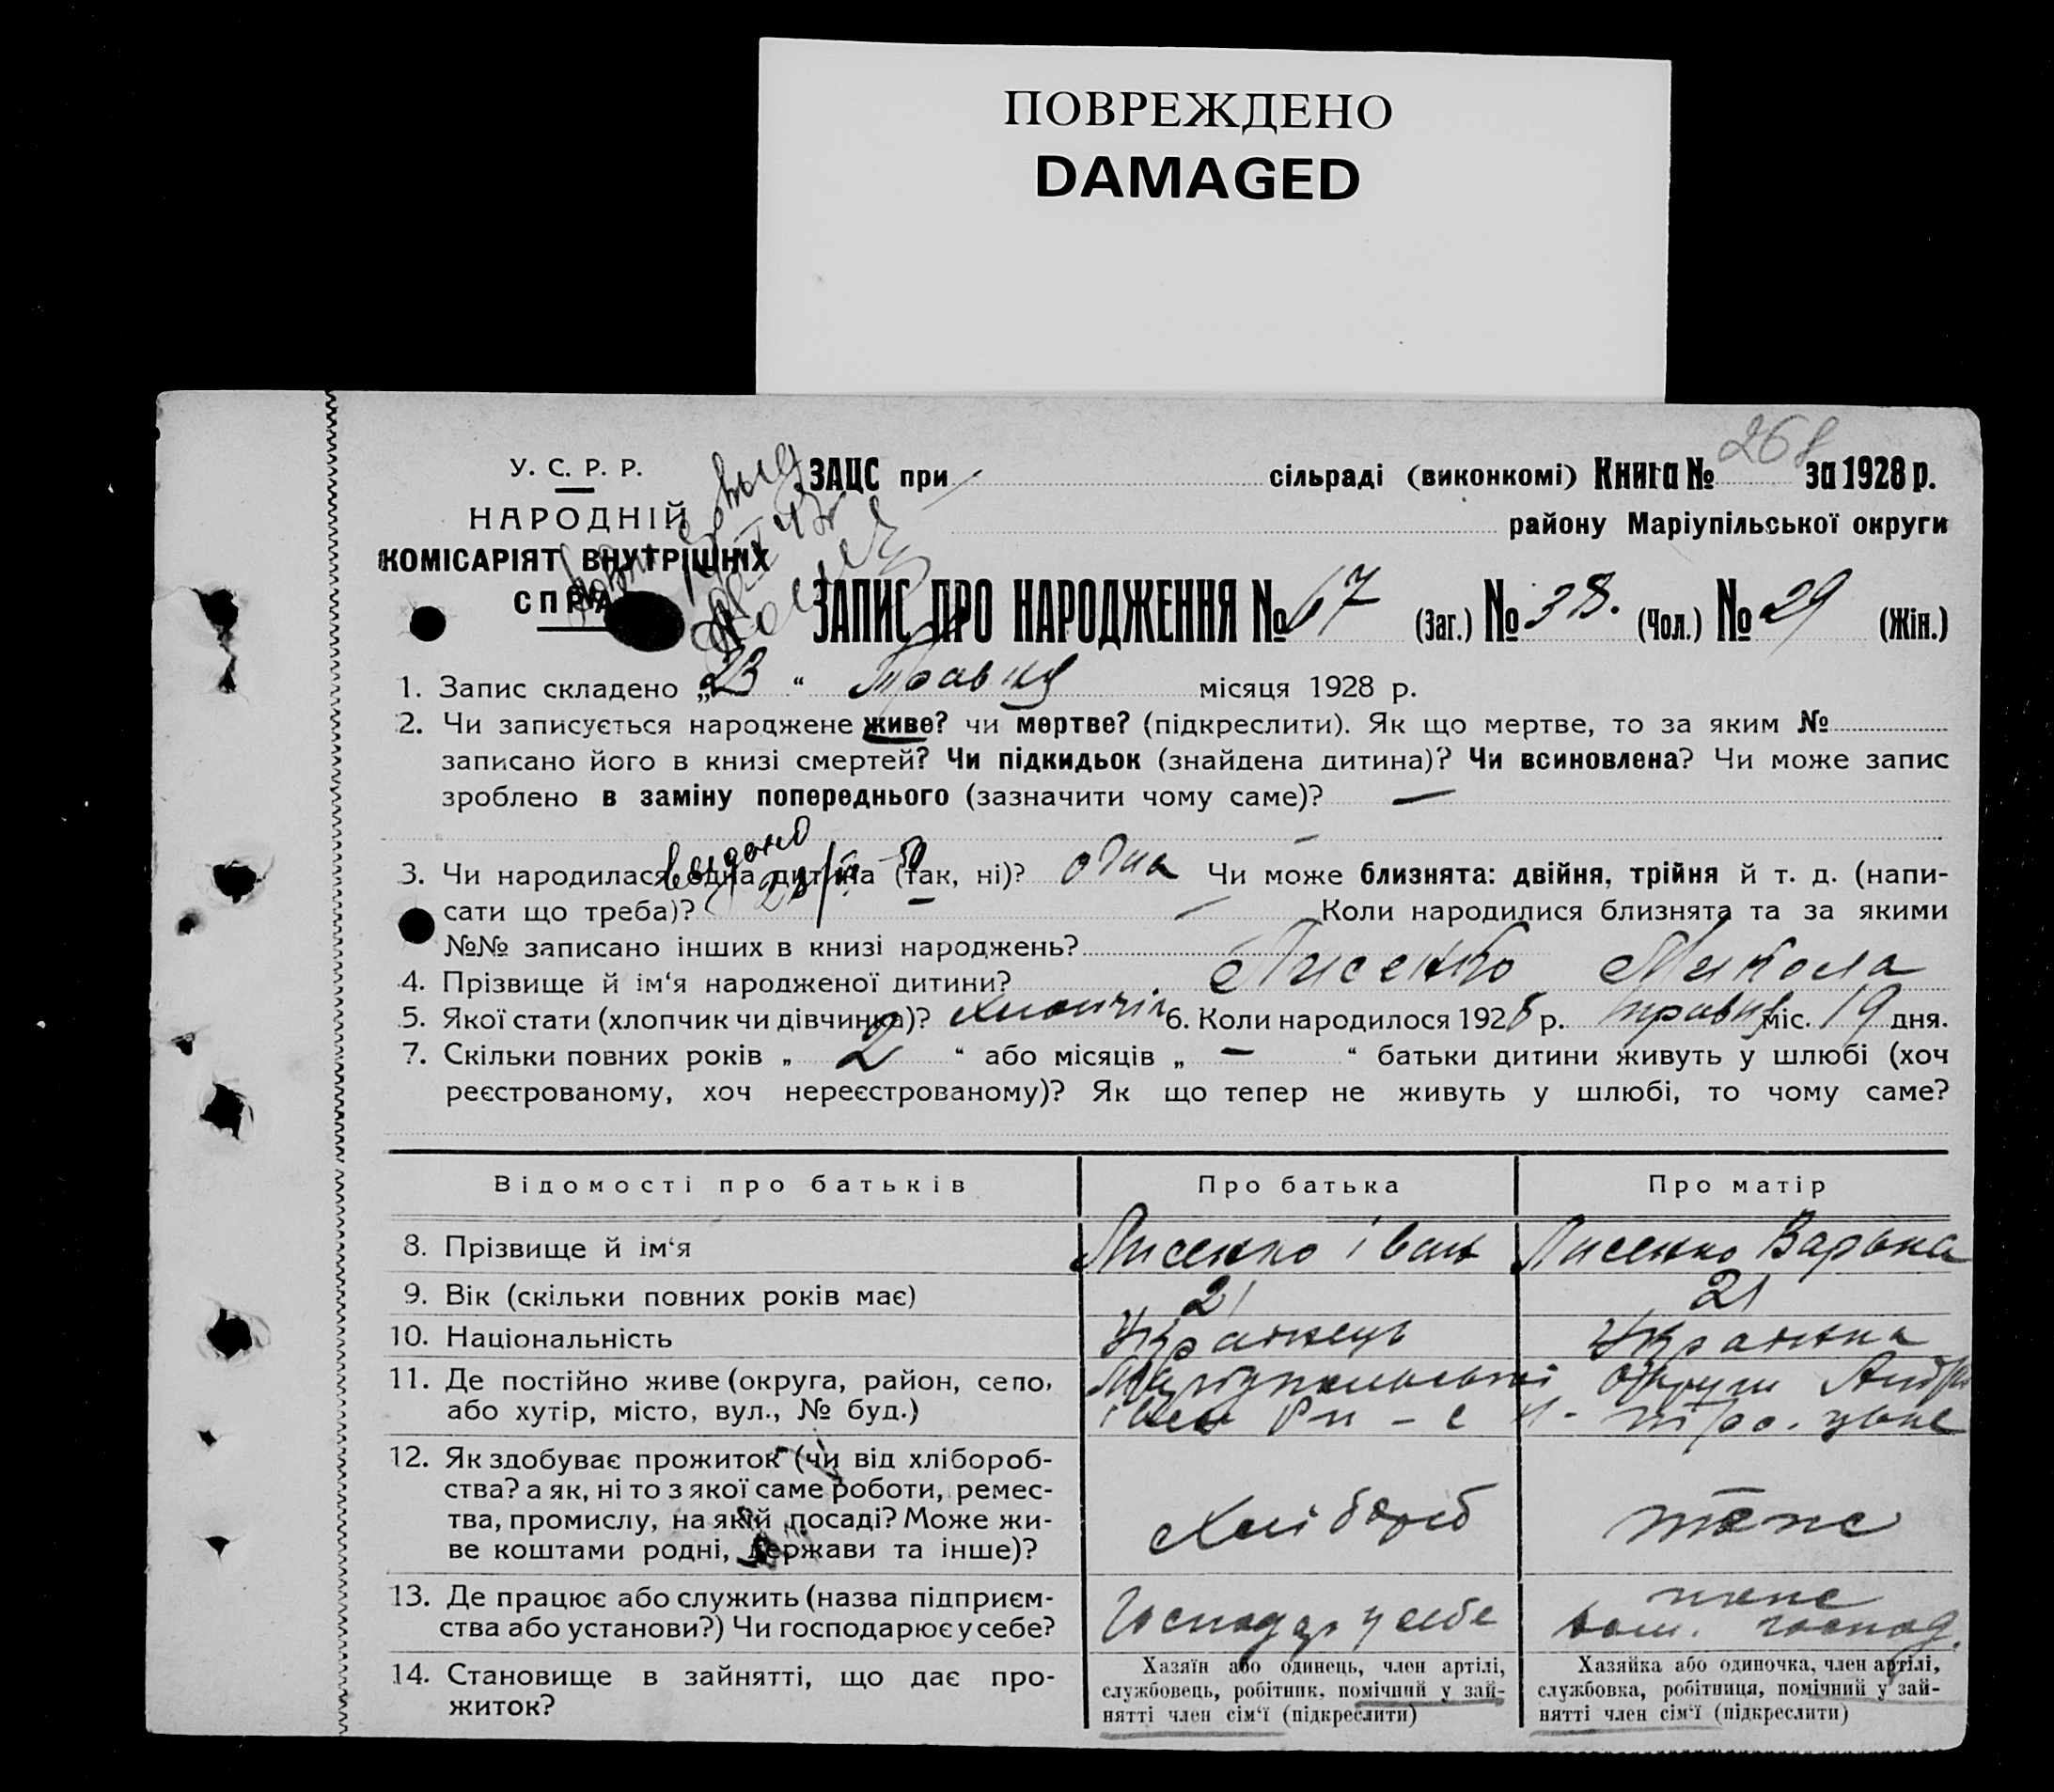 ПОВРЕЖДЕНО
DAMAGED
268
У. С. Р. Р.
НАРОДНІЙ
КОМІСАРІЯТ ВНУТРІШНІХ
СПРАВ
ЗАЦС при сільраді (виконкомі) Книга № за 1928 р.
району Маріупільської округи
ЗАПИС ПРО НАРОДЖЕННЯ № 67 (Заг.) № 38. (Чол.) № 29 (Жін.)
1. Запис складено „23“ Травня місяця 1928 р.
2. Чи записується народжене живе? чи мертве? (підкреслити). Як що мертве, то за яким №
записано його в книзі смертей? Чи підкидьок (знайдена дитина)? Чи всиновлена? Чи може запис
зроблено в заміну попереднього (зазначити чому саме)? —
видано
3. Чи народилася одна дитина (так, ні)? одна Чи може близнята: двійня, трійня й т. д. (напи-
сати що треба)? — Коли народилися близнята та за якими
№№ записано інших в книзі народжень?
4. Прізвище й ім‘я народженої дитини? Лисенко Микола
5. Якої стати (хлопчик чи дівчинка)? хлопчік 6. Коли народилося 1928 р. травня міс. 19 дня.
7. Скільки повних років „ 2 “ або місяців „ — “ батьки дитини живуть у шлюбі (хоч
реєстрованому, хоч нереєстрованому)? Як що тепер не живуть у шлюбі, то чому саме?
Відомості про батьків Про батька Про матір
8. Прізвище й ім‘я Лисенко Іван Лисенко Варька
9. Вік (скільки повних років має) 21 21
10. Національність Українець Українка
11. Де постійно живе (округа, район, село, Маріупольської округи
або хутір, місто, вул., № буд.)
12. Як здобуває прожиток (чи від хлібороб-
ства? а як, ні то з якої саме роботи, ремес-
тва, промислу, на якій посаді? Може жи-
ве коштами родні, держави та інше)?
Хлібороб теж
13. Де працює або служить (назва підприєм-
ства або установи?) Чи господарює у себе?
Господар у себе господ.
14. Становище в зайнятті, що дає про-
житок?
Хазяїн або одинець, член артілі,
службовець, робітник, помічний у зай-
нятті член сім‘ї (підкреслити)
Хазяйка або одиночка, член артілі,
службовка, робітниця, помічний у зай-
нятті член сім‘ї (підкреслити)